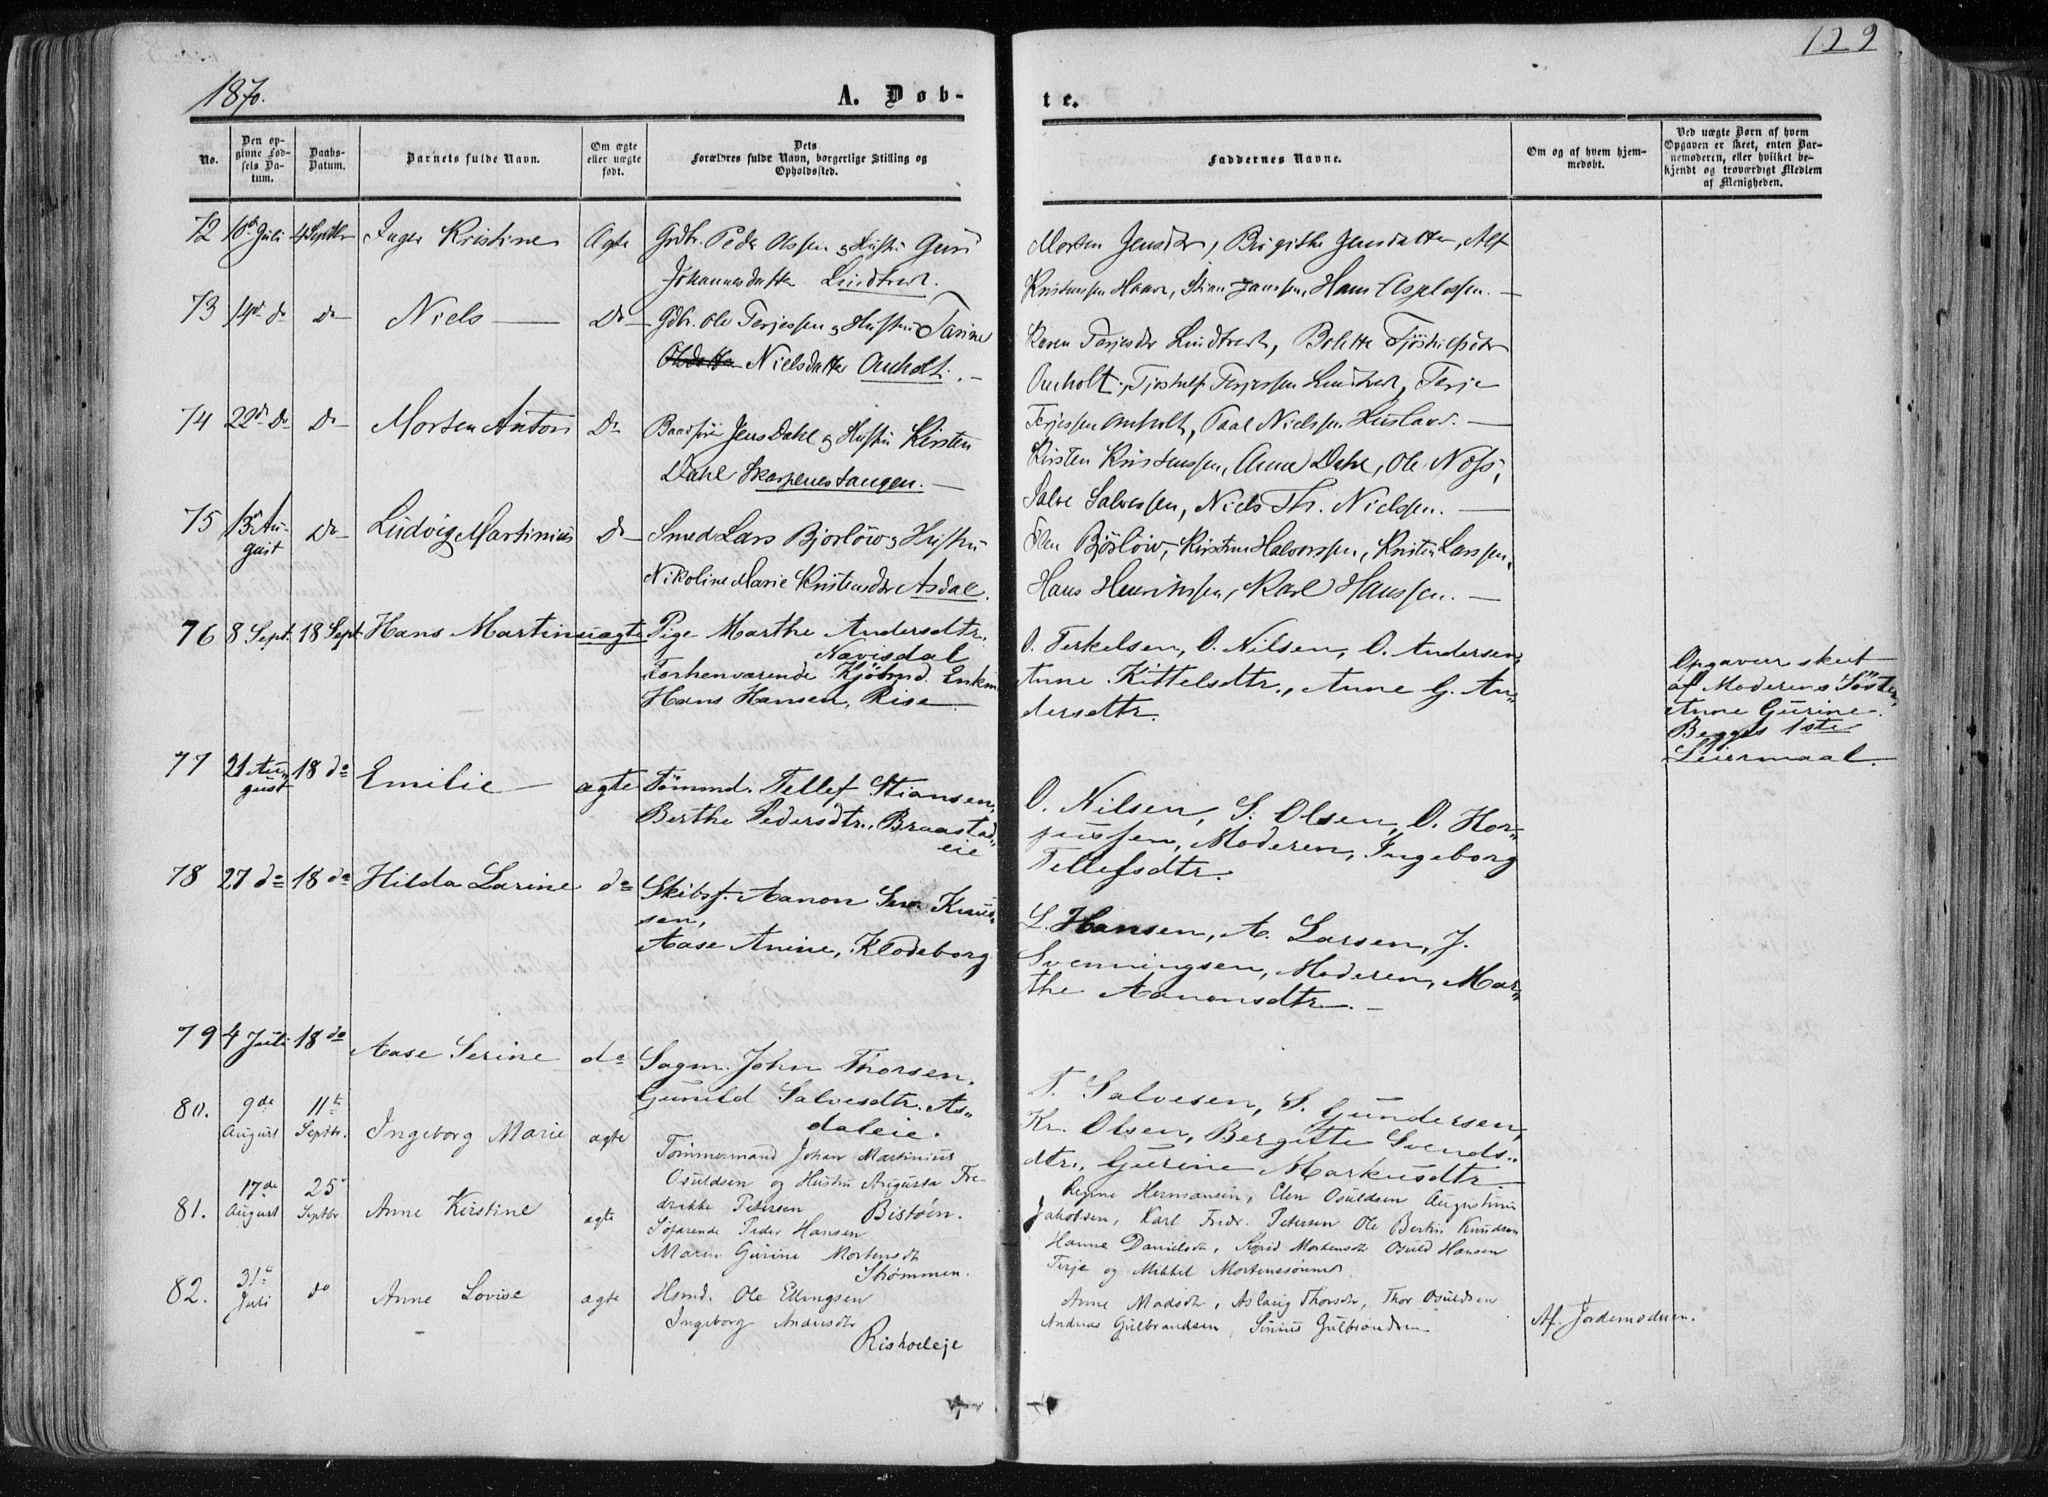 129
1870.
A. Døb-
te.
No.
Den op-
givne Fød-
sels Da-
tum.
Daabs-
Datum.
Barnets fulde Navn.
Om ægte
eller uægte
født.
Dets
Forældres fulde Navn, borgerlige Stilling og
Opholdssted.
Faddernes Navne.
Om og af hvem hjem-
medøbt.
Ved uægte Børn af hvem
Opgaven er skeet, enten Bar-
nemoderen, eller hvilket be-
kjendt og troværdigt Medlem
af Menigheden.
72 10de Juli 4 Septbr Inger Kristine Ægte Grdbr. Peder Olssen & Hustru Guri
Johannesdatter Lindtveit.
Morten Jensdtr, Birgithe Jensdatter, Alf
Kristenssen Haave, Stian Janssen, Hans Asplossen.
73 14de do do Niels Do Gdbr. Ole Terjessen & Hustru Tarine
Nielsdatter Omholt.
Karen Terjesdtr Lindtveit, Bolette
Omholt, Terjessen Lindtveit, Terje
Terjessen Omholt, Paal Nielssen
74 22de Do Do Morten Anton Do Jens Dahl & Hustru Kirsten
Dahl Skarpenestangen.
Kirsten Kristenssen, Anna Dahl, Ole Næss,
Salve Salvessen, Niels Th. Nielsen.
75 13de Au-
gust Do Ludvig Martinius Do Smed Lars Bjorløw & Hustru
Nikoline Marie Kristensdtr Asdal.
Elen Bjørløw, Kirsten Halvorssen, Kristen Larssen,
Hans Henrikssen, Karl Hanssen.
76 8 Sept. 18 Sept. Hans Martin uægte Pige Marthe Andersdtr.
Navisdal
Forhenværende Kjøbmd. Enkm
Hans Hansen, Rise
O. Terkelsen, O. Nilsen, O. Andersen,
Anne Kittelsdtr., Anne G. An-
dersdtr.
Opgaven skeet
af Moderens Søster,
Anne Gurine.
Begges 1ste
Leiermaal.
77 21 Au-
gust 18 do Emilie ægte Tømmd. Tellef Stiansen,
Berthe Pedersdtr., Braastad-
eie
O. Nilsen, S. Olsen, O. Hor-
Moderen, Ingeborg
Tellefsdtr.
78 27 do 18 do Hilda Larine do Skibsf. Aanon Knud-
sen,
Aase Anine, Klodeborg
L. Hansen, A. Larsen, J.
Svenningsen, Moderen, Mar-
the Aanonsdtr.
79 4 Juli 18 do Aase Serine do Sagm. John Thorsen,
Gunild Salvesdtr. As-
daleie.
T. Salvesen, S. Gundersen,
Kr. Olsen, Bergitte Svends-
dtr., Gurine Markusdtr.
80. 9de
August 11te
Septbr. Ingeborg Marie ægte Tømmermand Johan Martinius
Osuldsen og Hustru Augusta Fre-
drikke Petersen Bistøen.
Regine Hermansen, Elen Osuldsen Augustinus
Jakobsen, Karl Fredr. Petersen Ole Bertin Knudsen
81. 17de
August 25
Septbr Anne Kirstine ægte Søfarende Peder Hansen
Maren Gurine Mortensdt
Strømmen.
Hanna Danielsdt, Sigrid Mortensdt Osuld Hansen
Terje og Mikkel Mortenssønner
82. 31te
Juli do Anne Lovise ægte Hsmd. Ole Ellingsen
Ingeborg Andersdtr
Riskoeleje
Anne Madsdt, Aslaug Thorsdt, Thor Osuldsen
Andreas Gulbrandsen, Gulbrandsen
Af Jordemoderen.